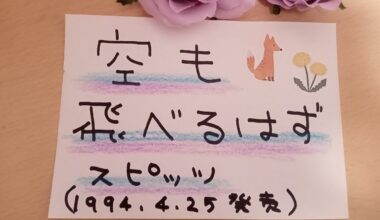 空も
飛べるはず
スピッツ
(1994.4.25発売)